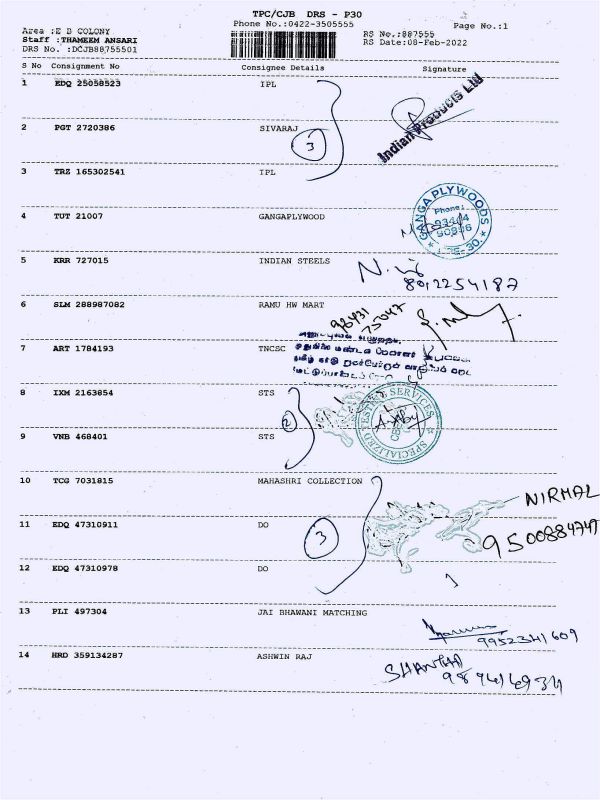 TPC/CJB DRS - P30
Phone No.:0422-3505555
Page No.:1
Area :E B COLONY
Staff :THAMEEM ANSARI
DRS No. :DCJB88755501
RS No.:887555
RS Date:08-Feb-2022
S No Consignment No Consignee Details Signature
1 EDQ 25058523 IPL
Indian Products Ltd
2 PGT 2720386 SIVARAJ
3
3 TRZ 165302541 IPL
4 TUT 21007 GANGAPLYWOOD
GANGA PLYWOODS
Phone:
5 KRR 727015 INDIAN STEELS
8012254187
6 SLM 288987082 RAMU HW MART
98431
75047
7 ART 1784193 TNCSC
8 IXM 2163854 STS
2
SPECIALIZED TESTING SERVICES
9 VNB 468401 STS
10 TCG 7031815 MAHASHRI COLLECTION
NIRMAL
9500884747
11 EDQ 47310911 DO
3
12 EDQ 47310978 DO
13 PLI 497304 JAI BHAWANI MATCHING
9952341609
14 HRD 359134287 ASHWIN RAJ